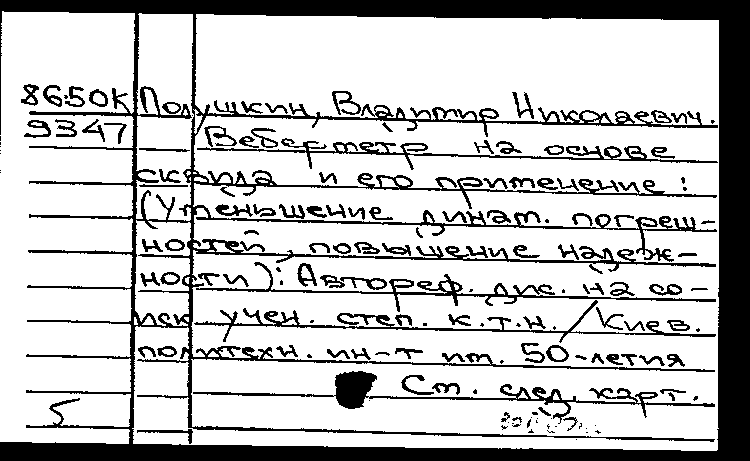 86-50К Полушкин, Владимир Николаевич.
9347 Веберметр на основе
сквида и его применение:
(Уменьшение динам. погреш-
ностей, повышение надеж-
ности): Автореф. дис. на со-
иск. учен. степ. к.т.н. / Киев.
политехн. ин-т им. 50-летия
Ст. след. карт.
5